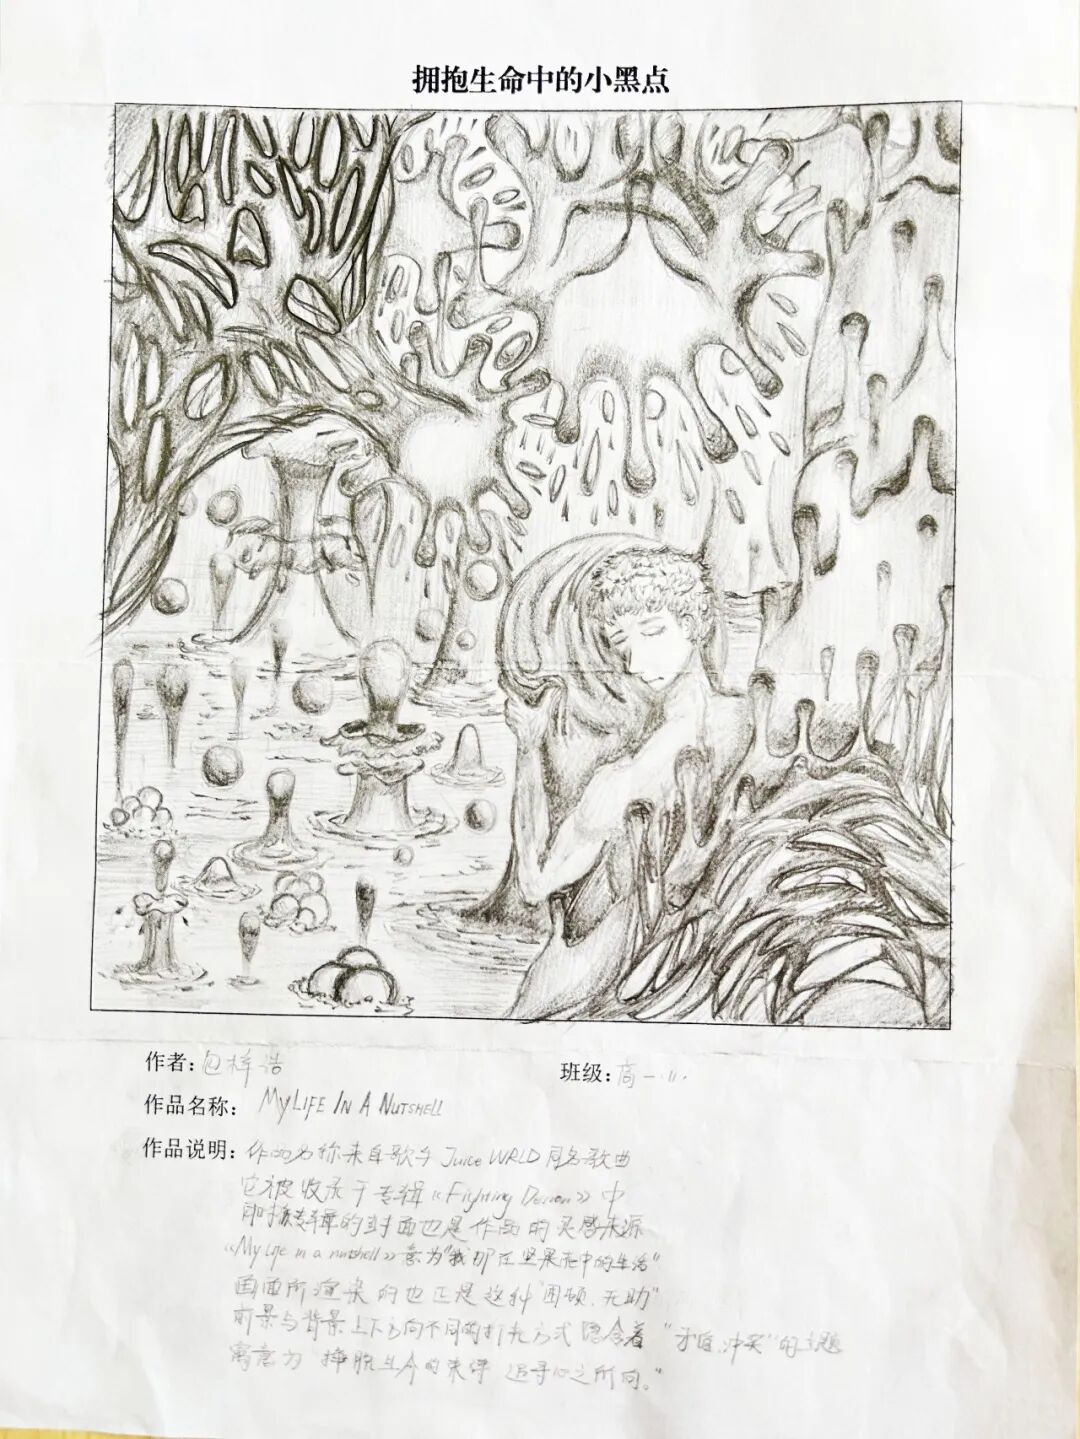 拥抱生命中的小黑点
作者：包梓浩
班级：高一
作品名称：MY LIFE IN A NUTSHELL
作品说明：作品名称来自歌手 Juice WRLD 同名歌曲
它被收录于专辑《Fighting Demon》中
专辑的封面也是作品的灵感来源
《My life in a nutshell》意为"我那在坚果壳中的生活"
画面所渲染的也正是这种"困顿、无助"
前景与背景上下方向不同的打光方式隐含着"矛盾、冲突"的主题
寓意为"挣脱生命的束缚 追寻心之所向。"